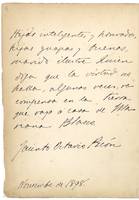 Hijos inteligentes, y honrados,
hijas guapas y buenas,
marido ilustre ¡luego
digan que la virtud no
halla, algunas veces, re-
compensa en la tierra
que vaya a casa de
Blanca
Jacinto Octavio Picón
Noviembre de 1898.